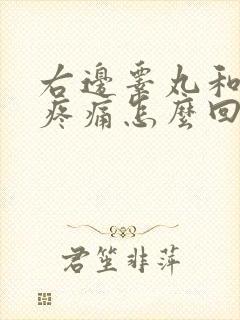 右邊睪丸和
疼痛怎麼回
君笙非萍